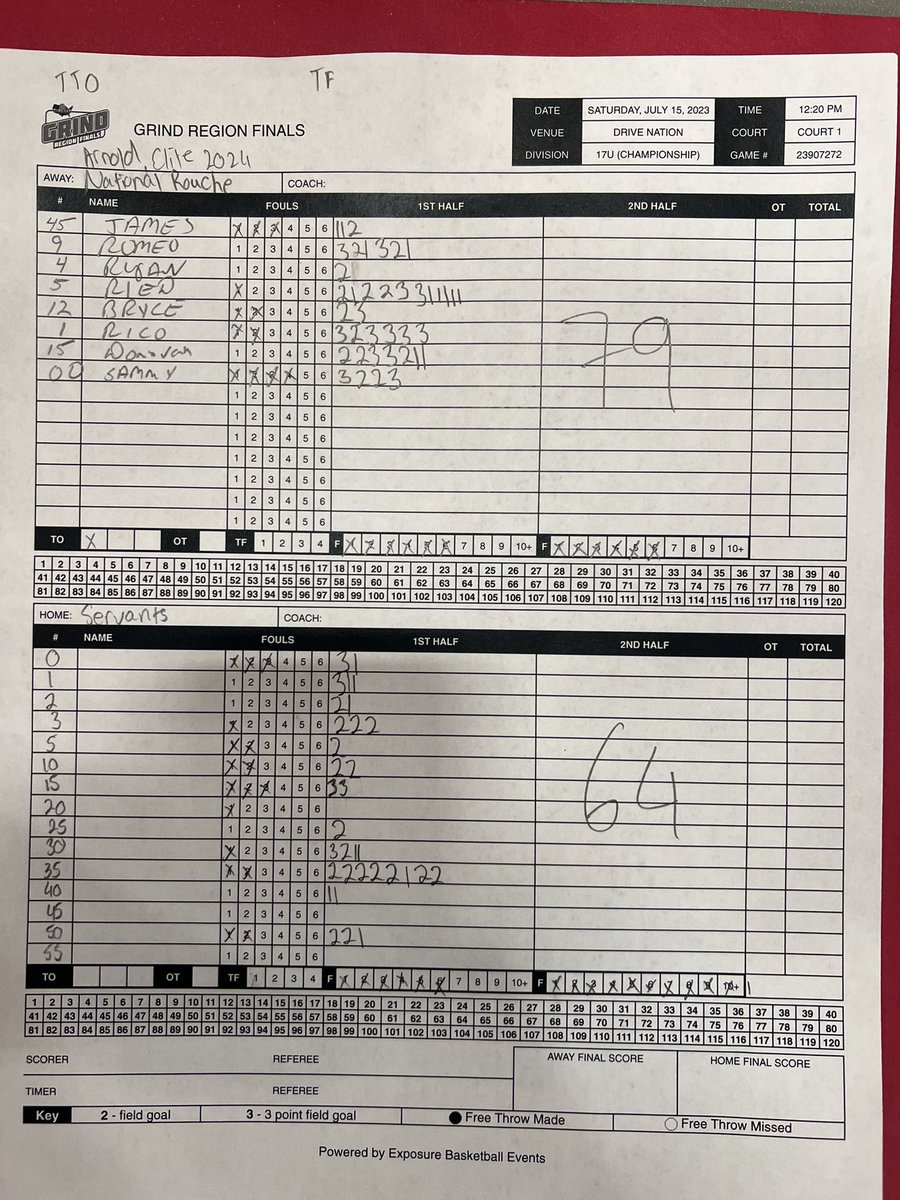 TTO TF
GRIND
REGION FINALS
GRIND REGION FINALS
DATE SATURDAY, JULY 15, 2023 TIME 12:20 PM
VENUE DRIVE NATION COURT COURT 1
DIVISION 17U (CHAMPIONSHIP) GAME # 23907272
Arnold Clite 2024
AWAY: National Rouche COACH:
# NAME FOULS 1ST HALF 2ND HALF OT TOTAL
45 JAMES X X X 4 5 6 112
9 ROMEO 1 2 3 4 5 6 321321
4 RYAN 1 2 3 4 5 6 21
5 RIEN X 2 3 4 5 6 21223311111
12 BRYCE X X 3 4 5 6 23
1 RICO X X 3 4 5 6 323333
15 Donovan 1 2 3 4 5 6 2233211
00 SAMMY X X X X 5 6 3223
79
1 2 3 4 5 6
1 2 3 4 5 6
1 2 3 4 5 6
1 2 3 4 5 6
1 2 3 4 5 6
1 2 3 4 5 6
1 2 3 4 5 6
TO X OT TF 1 2 3 4 F X X X X X X 7 8 9 10+ F X X X X X X 7 8 9 10+
1 2 3 4 5 6 7 8 9 10 11 12 13 14 15 16 17 18 19 20 21 22 23 24 25 26 27 28 29 30 31 32 33 34 35 36 37 38 39 40
41 42 43 44 45 46 47 48 49 50 51 52 53 54 55 56 57 58 59 60 61 62 63 64 65 66 67 68 69 70 71 72 73 74 75 76 77 78 79 80
81 82 83 84 85 86 87 88 89 90 91 92 93 94 95 96 97 98 99 100 101 102 103 104 105 106 107 108 109 110 111 112 113 114 115 116 117 118 119 120
HOME: Servants COACH:
# NAME FOULS 1ST HALF 2ND HALF OT TOTAL
0 X X X 4 5 6 31
1 1 2 3 4 5 6 311
2 1 2 3 4 5 6 21
3 X 2 3 4 5 6 222
5 X X 3 4 5 6 2
10 X X 3 4 5 6 22
15 X X X 4 5 6 33
20 X 2 3 4 5 6
25 1 2 3 4 5 6 2
30 X 2 3 4 5 6 3211
35 X X 3 4 5 6 22222122
40 1 2 3 4 5 6 11
45 1 2 3 4 5 6
50 X X 3 4 5 6 221
55 1 2 3 4 5 6
64
TO OT TF 1 2 3 4 F X X X X X X 7 8 9 10+ F X X X X X X X X X 10+ 1
1 2 3 4 5 6 7 8 9 10 11 12 13 14 15 16 17 18 19 20 21 22 23 24 25 26 27 28 29 30 31 32 33 34 35 36 37 38 39 40
41 42 43 44 45 46 47 48 49 50 51 52 53 54 55 56 57 58 59 60 61 62 63 64 65 66 67 68 69 70 71 72 73 74 75 76 77 78 79 80
81 82 83 84 85 86 87 88 89 90 91 92 93 94 95 96 97 98 99 100 101 102 103 104 105 106 107 108 109 110 111 112 113 114 115 116 117 118 119 120
SCORER REFEREE AWAY FINAL SCORE HOME FINAL SCORE
TIMER REFEREE
Key 2 - field goal 3 - 3 point field goal Free Throw Made Free Throw Missed
Powered by Exposure Basketball Events